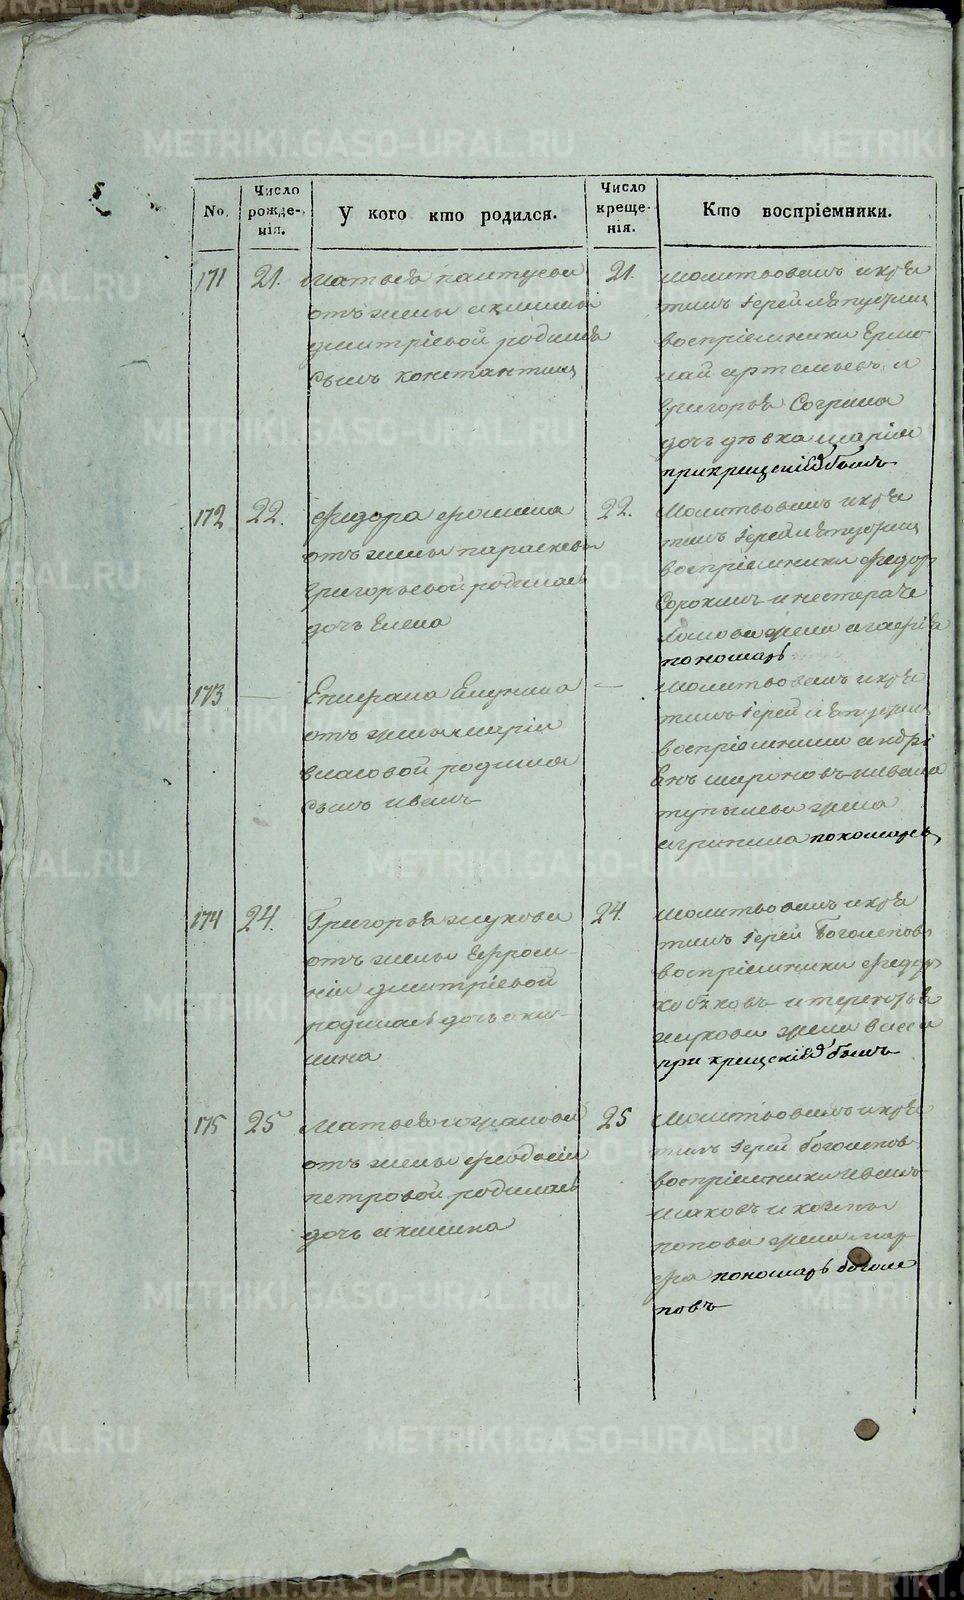 METRIKI.GASO-URAL.RU
No.
Число рожде-нія.
У кого кто родился.
Число креще-нія.
Кто воспріемники.
171
21.
Матьвѣя пантуева
отъ жены акилины
дмитріевой родился
сынъ константинъ
21.
Молитвовалъ и крѣ
тилъ Іерей
воспріемники Ермо
лай артемьевъ и
григорья Согрина
дочь дѣвка марія
прикрещеніи былъ
172
22.
Федора фомина
отъ жены параскевы
григорьевой родилась
дочь Елена
22.
Молитвовалъ и крѣ
тилъ Іерей
воспріемники Федор
Сорокинъ и нестера
жена агафія
пономарь
173
—
отъ жены маріи
власовой родился
сынъ иванъ
—
Молитвовалъ и крѣ
тилъ Іерей
воспріемники андрі
анъ мироновъ ивана
жена
агрипина пономарь
174
24.
Григорья жукова
отъ жены Ефроси-
ніи дмитріевой
родилась дочь аки-
лина
24.
Молитвовалъ и крѣ
тилъ Іерей Боголеповъ
воспріемники Федор
и терентья
жукова жена васса
при крещеніи былъ
175
25
Матьвѣя
отъ жены феодосіи
петровой родилась
дочь акилина
25
Молитвовалъ и крѣ
тилъ Іерей боголеповъ
воспріемники иванъ
и козмы
попова жена мар
фа пономарь боголе
повъ